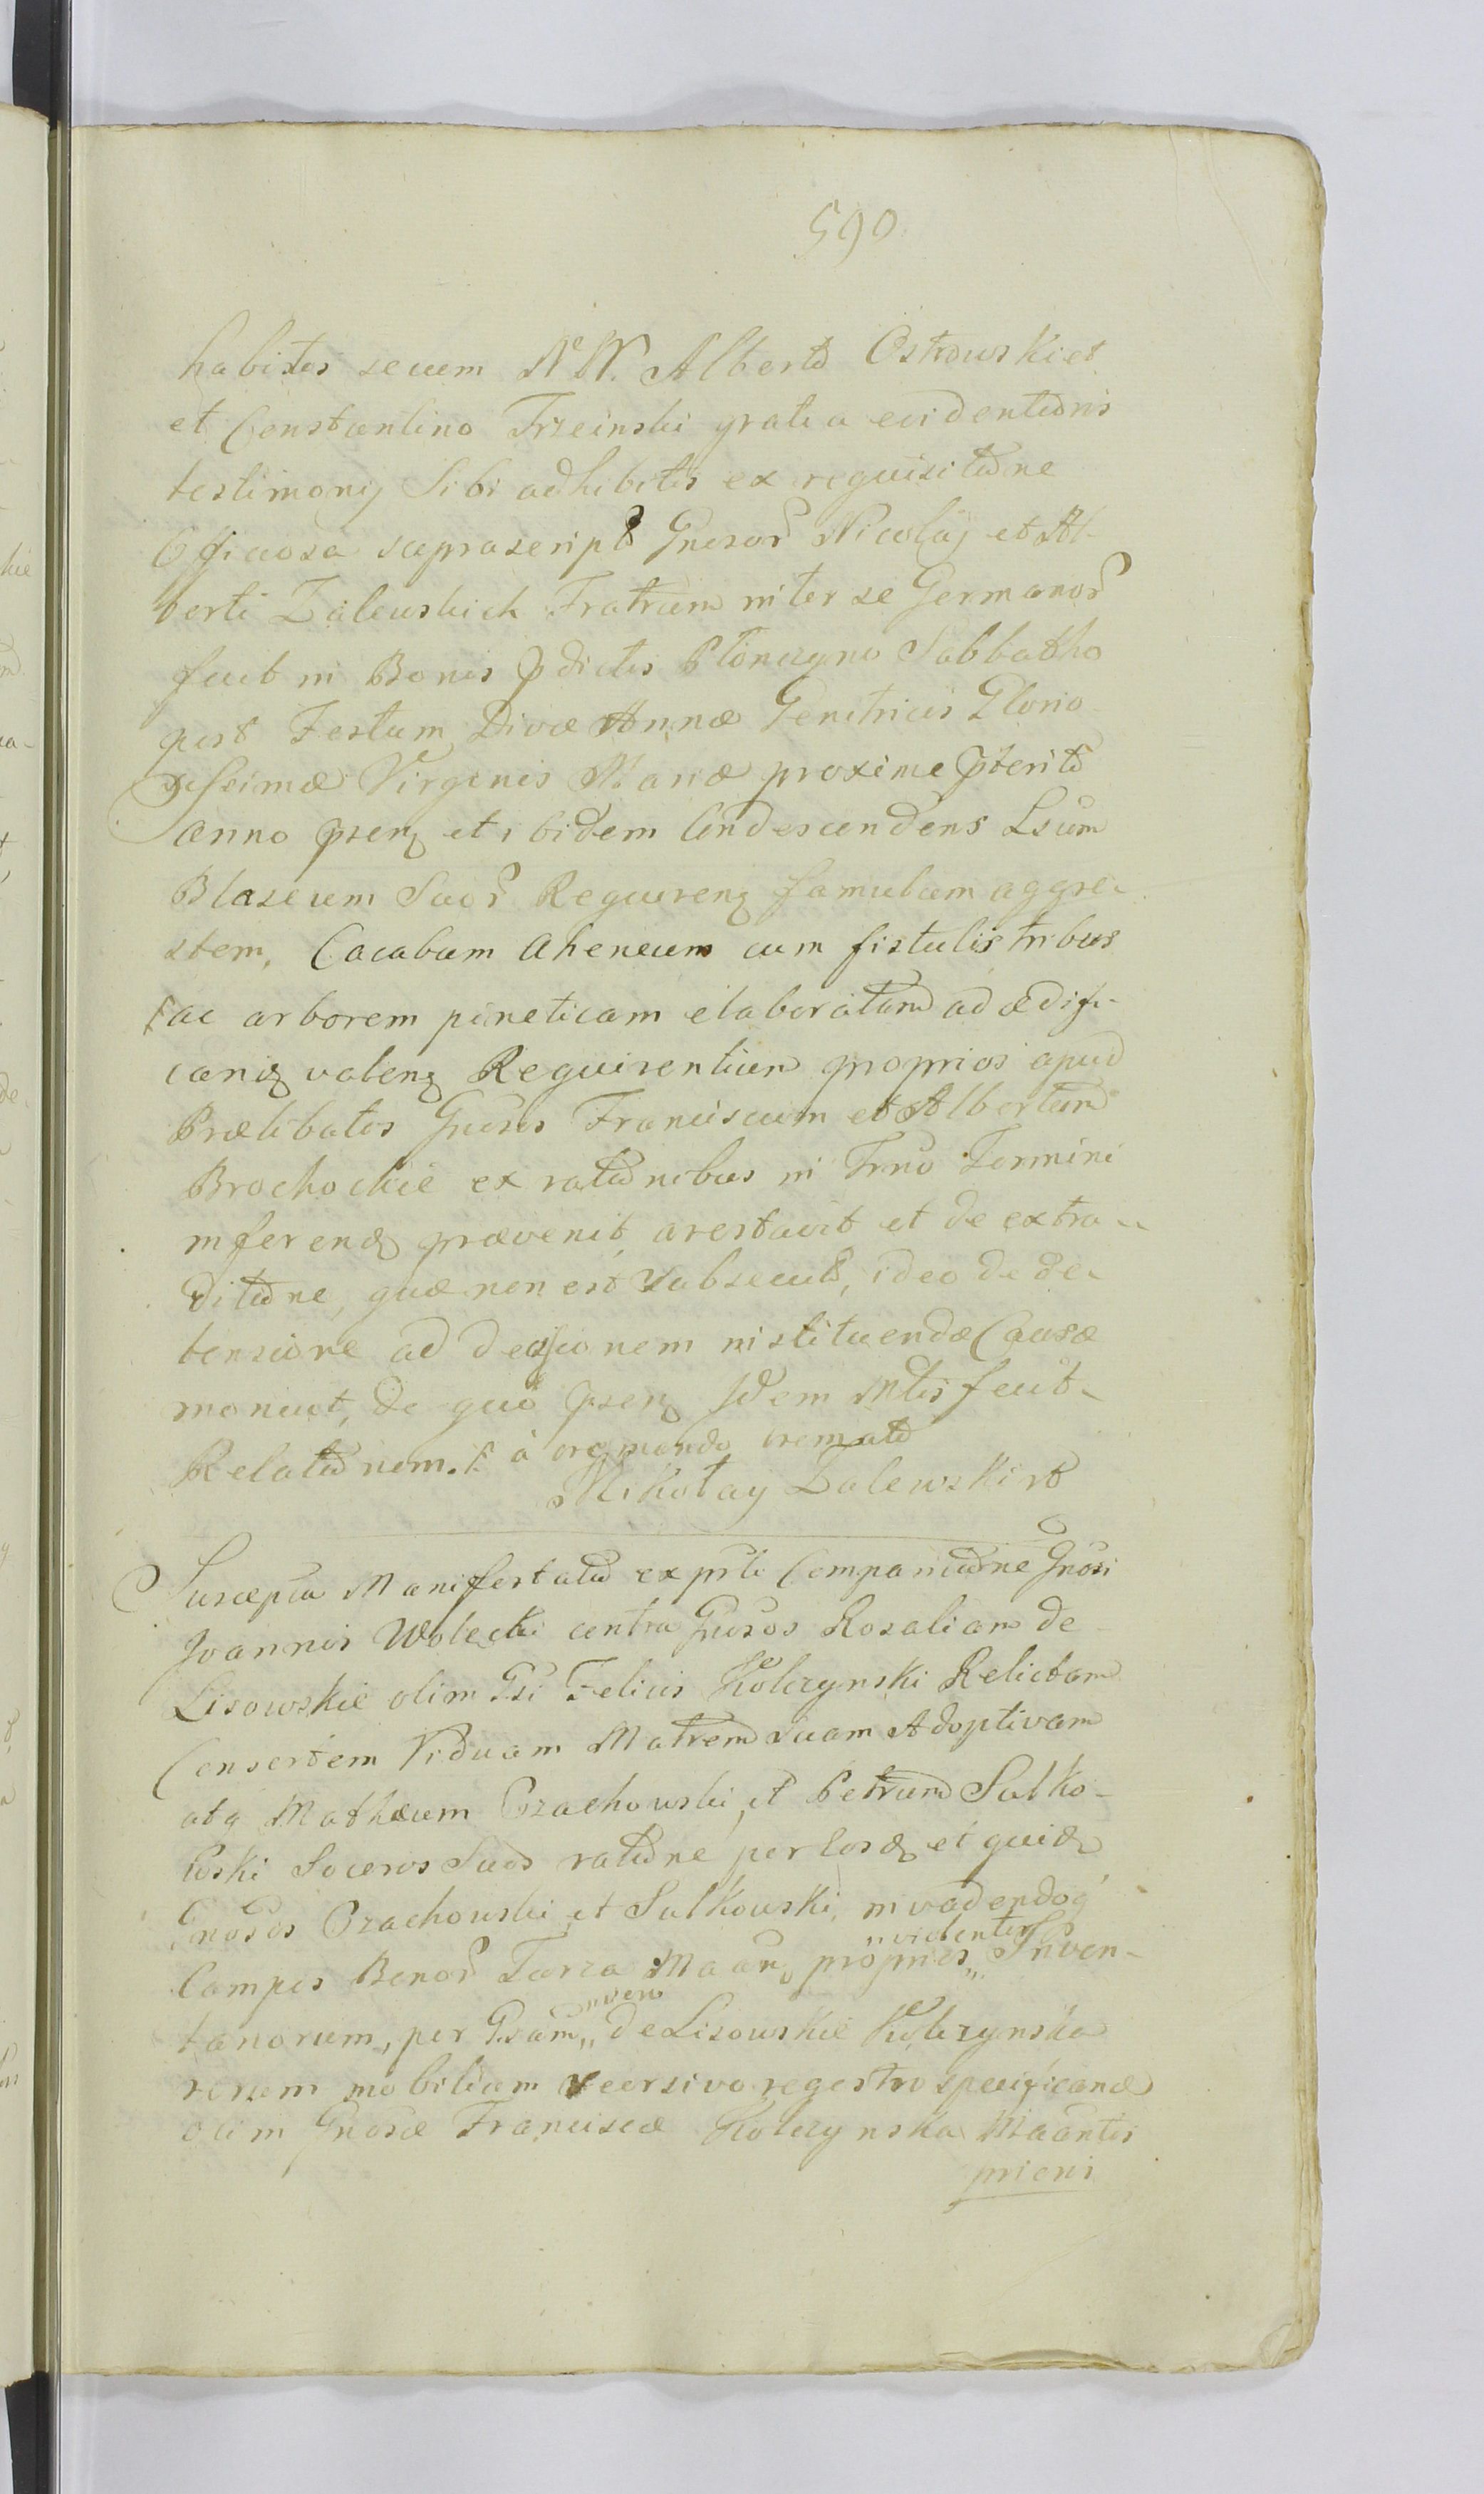 590.
habitis secum NN. Alberto Ostrowskiet
et Constantino Trzcinski gratia evidentioris
testimonij Sibi adhibitis ex requisitione
Officiosa suprascript Gnosor Nicolaj et Al-
berti Zalewskich Fratrum inter se Germanor
fuit in Bonis pdictis Płonczyno Sabbatho
post Festum Divæ Annæ Genitricis Glorio
sissimæ Virginis Mariæ proxime pterito
anno prnq et ibidem Condescendens Lsum
Blasium Suor Requirenq famulum aggre-
stem, Cacabum Aheneum cum fistulis tribus
ac arborem pineticam elaboratam ad ædifi-
canq valenq Requirentium proprios apud
Prælibatos Gnosos Franciscum et Albertum
Brochockie ex rationibus in Trno Termini
inferenq prævenit, arestavit et de extra-
ditione, quæ non est subsecuta, ideo de de-
tensione ad decisionem instituendæ Causæ
monuit, de quo prnq Idem Mtlis fecit
Relationem. à cremando cremato
Mikołay Zalewski
Suscepta Manifestatio ex prti Comparitione Gnosi
Joannis Wolecki contra Gnosos Rosaliam de
Lisowskie olim Gsi Felicis Kolczynski Relictam
Consortem Viduam Matrem suam Adoptivam
atq Mathæum Czachowski et Petrum Sulko-
wski Soceros Suos ratione per Eosq et quiq
Gnosos Czachowski et Sulkowski, invadendoq
violenter
Campis Bonor Turza Maan propries Inven-
tanorum, per Gsam de Lisowskie Kolczynska
rerum mobilium seorsivo regestro specificand
olim Gnosæ Franciscæ Kolczynska Maantis
prieni